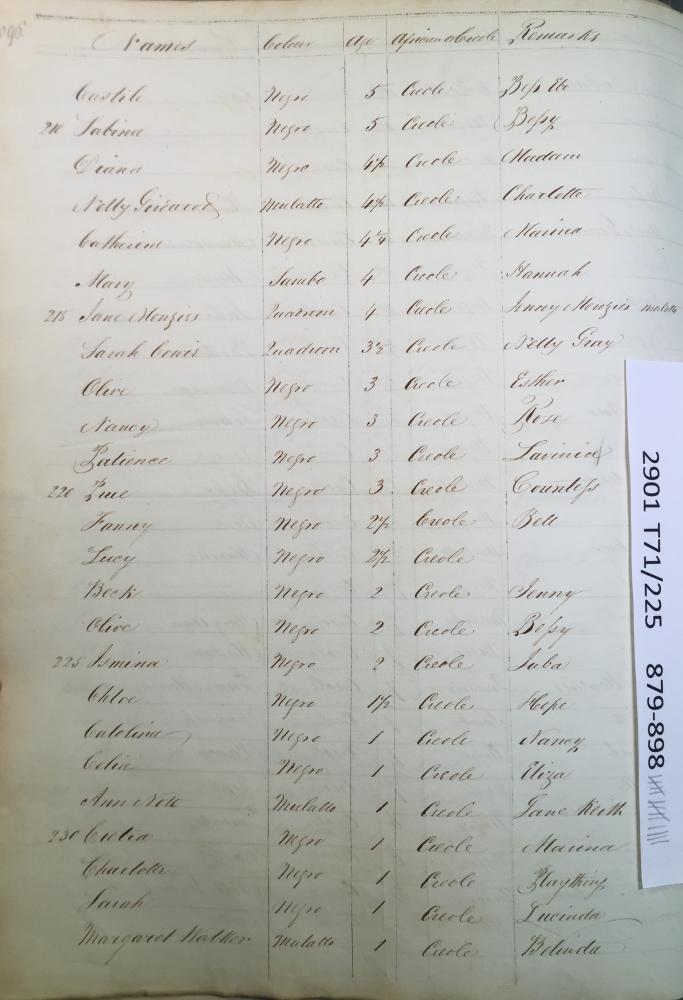 Names Colour Age African or Creole Remarks
Castile Negro 5 Creole Bess Ebo
210 Sabina Negro 5 Creole Bessy
Diana Negro 4½ Creole Madam
Netty Girard Mulatto 4½ Creole Charlotte
Catherine Negro 4¼ Creole Marina
Mary Sambo 4 Creole Hannah
215 Jane Menzies Quadroon 4 Creole Jenny Menzies mulatto
Sarah Cowie Quadroon 3½ Creole Netty Gray
Olive Negro 3 Creole Esther
Nancy Negro 3 Creole Rose
Patience Negro 3 Creole Lavinia
220 Sue Negro 3 Creole Countess
Fanny Negro 2½ Creole Bell
Lucy Negro 2½ Creole
Beck Negro 2 Creole Jenny
Olive Negro 2 Creole Bessy
225 Ismina Negro 2 Creole Juba
Chloe Negro 1½ Creole Hope
Catalina Negro 1 Creole Nancy
Celia Negro 1 Creole Eliza
Ann Mulatto 1 Creole Jane Keith
230 Cretia Negro 1 Creole Marina
Charlotte Negro 1 Creole Plaything
Sarah Negro 1 Creole Lucinda
Margaret Walker Mulatto 1 Creole Belinda
2901 T71/225 879-898